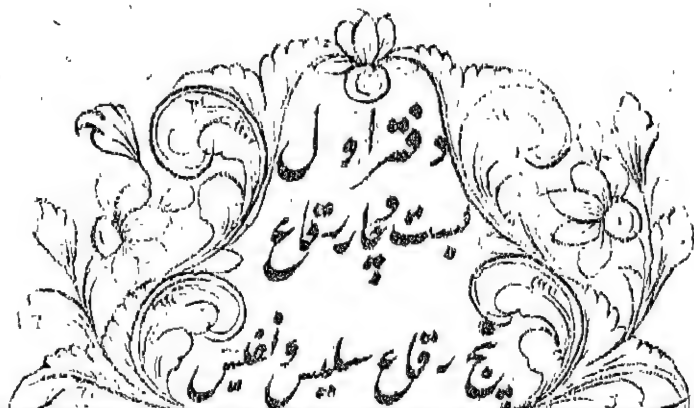 دفتر اول
بست و چار رقاع
پنج رقاع سلیس و نفیس